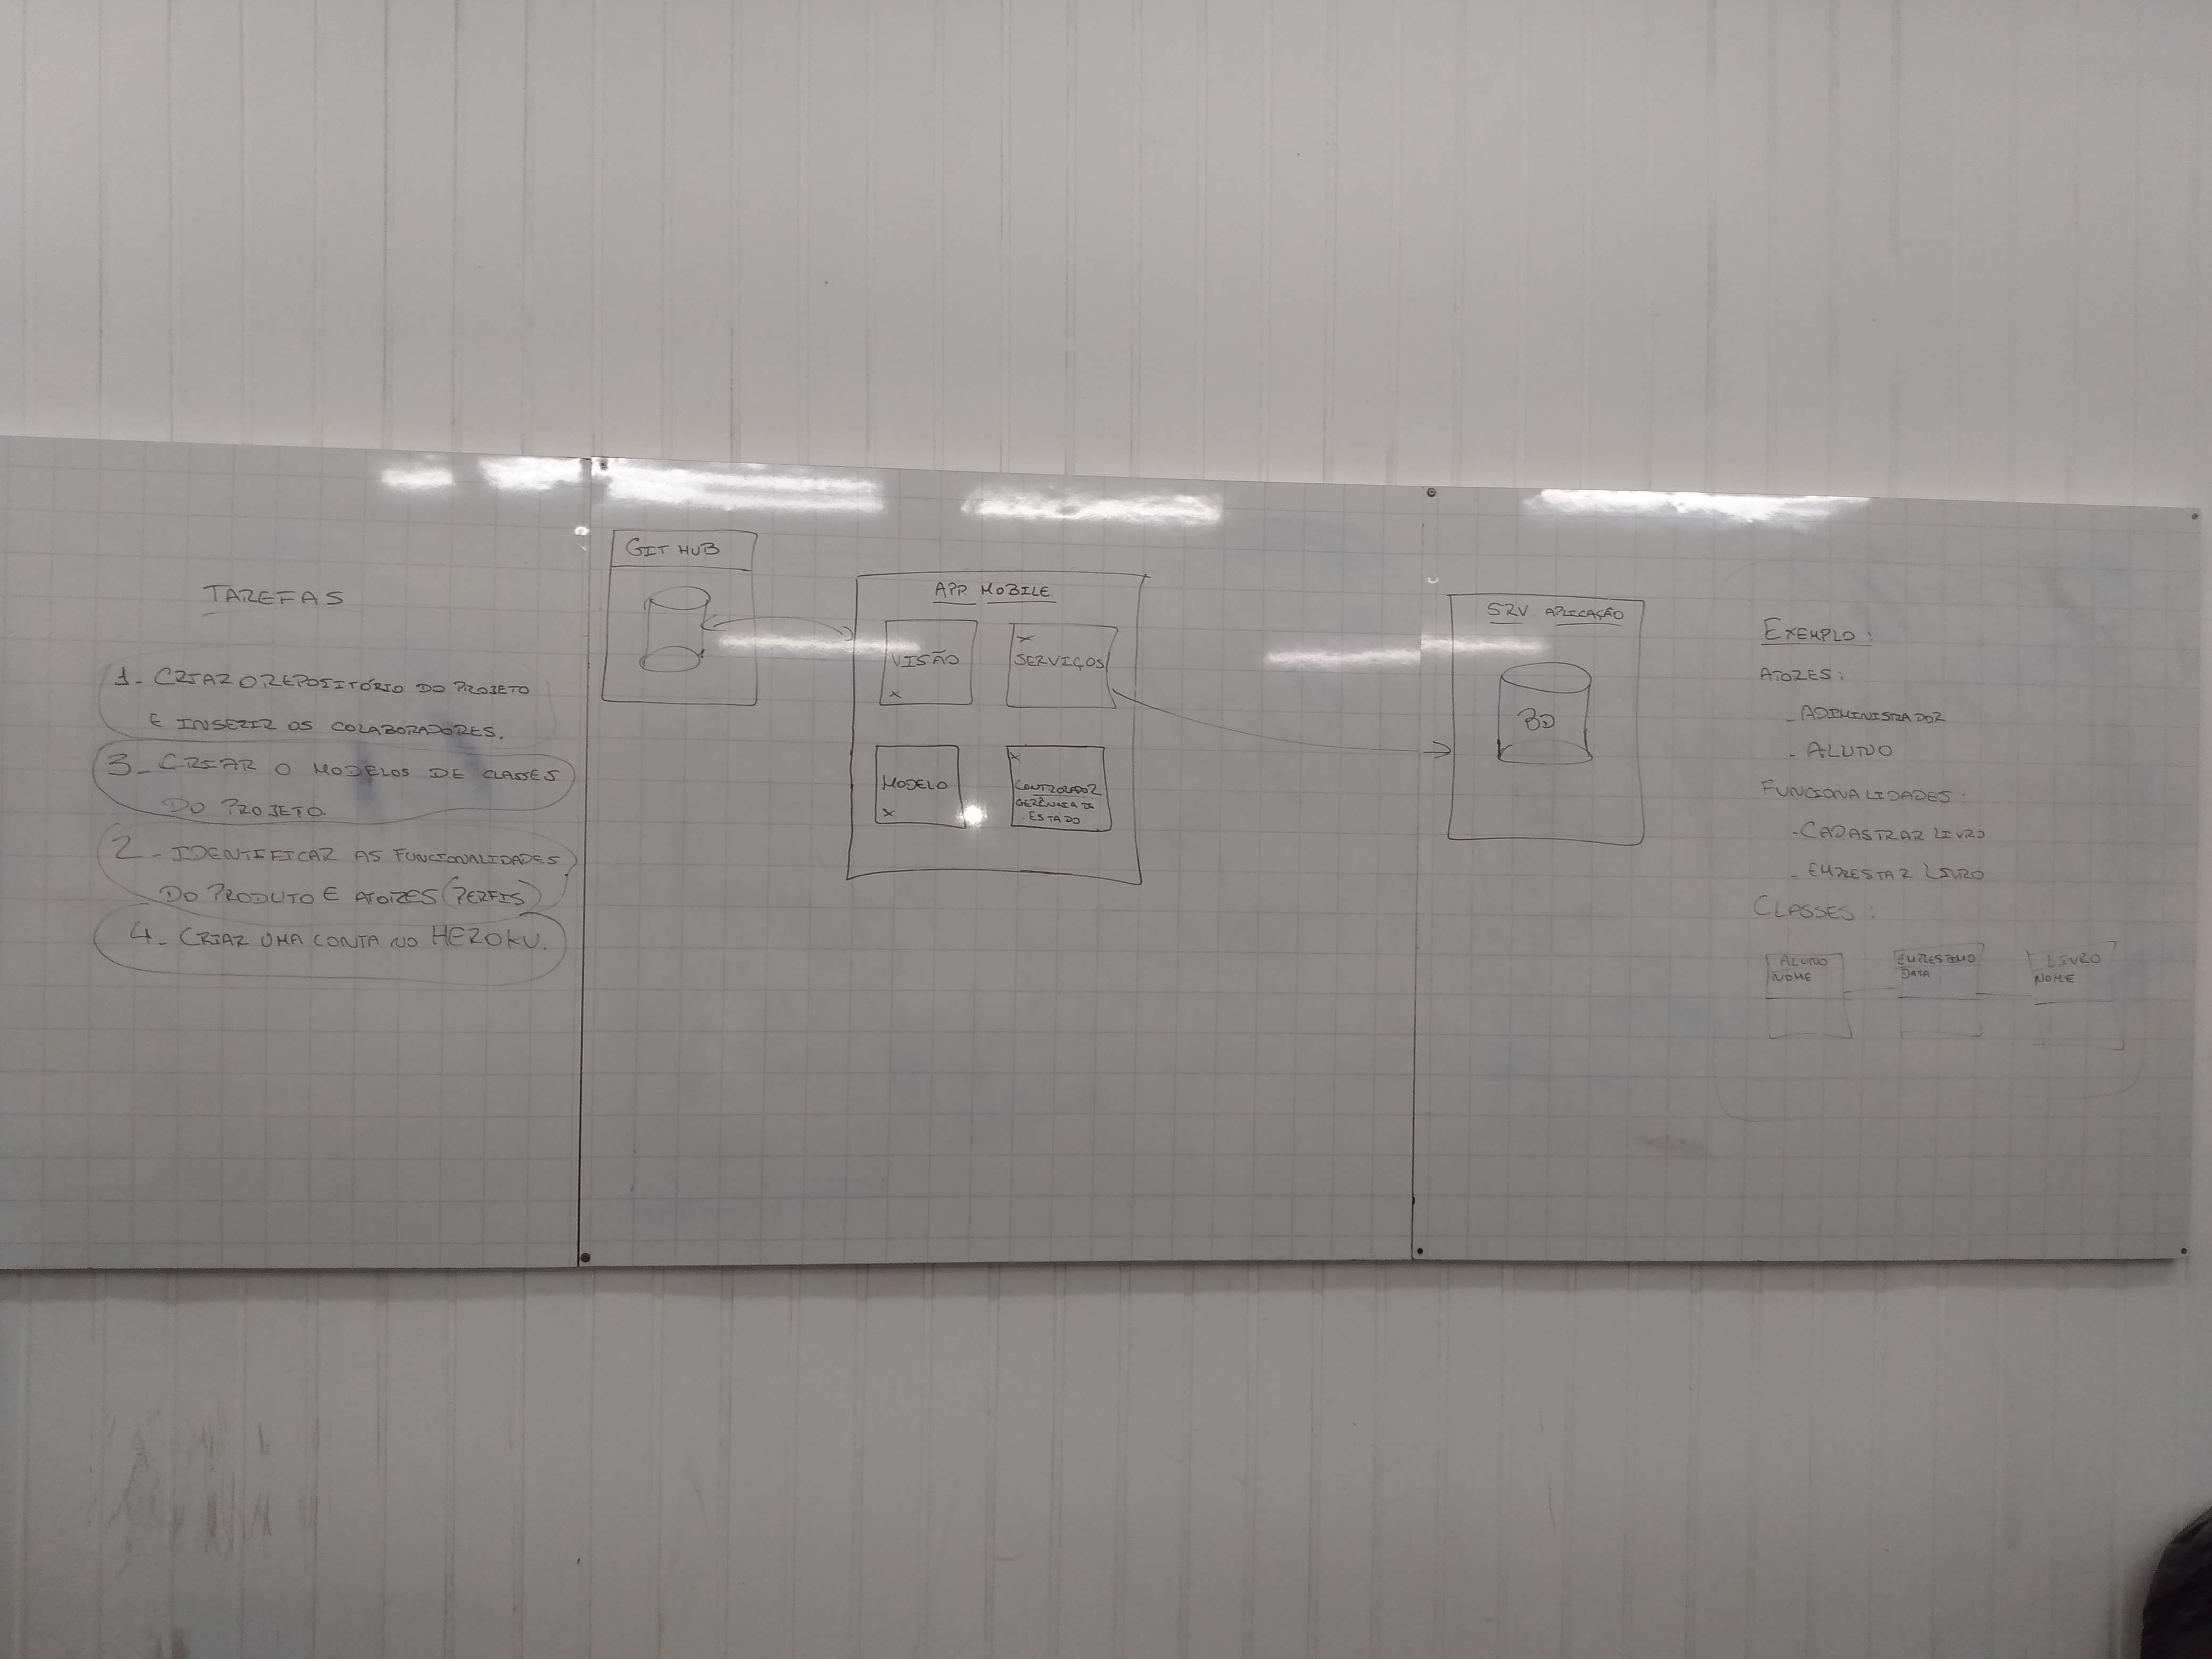 TAREFAS
1- CRIAR O REPOSITÓRIO DO PROJETO
E INSERIR OS COLABORADORES.
3- CRIAR O MODELOS DE CLASSES
DO PROJETO.
2- IDENTIFICAR AS FUNCIONALIDADES
DO PRODUTO E ATORES (PERFIS)
4- CRIAR UMA CONTA NO HEROKU.
GIT HUB
APP MOBILE
VISÃO
X
X
SERVIÇOS
MODELO
X
X
CONTROLADOR
GERÊNCIA DE
ESTADO
SRV. APLICAÇÃO
BD
EXEMPLO:
ATORES:
- ADIMINISTRADOR
- ALUNO
FUNCIONALIDADES:
- CADASTRAR LIVRO
- EMPRESTAR LIVRO
CLASSES:
ALUNO
NOME
EMPRESTIMO
DATA
LIVRO
NOME